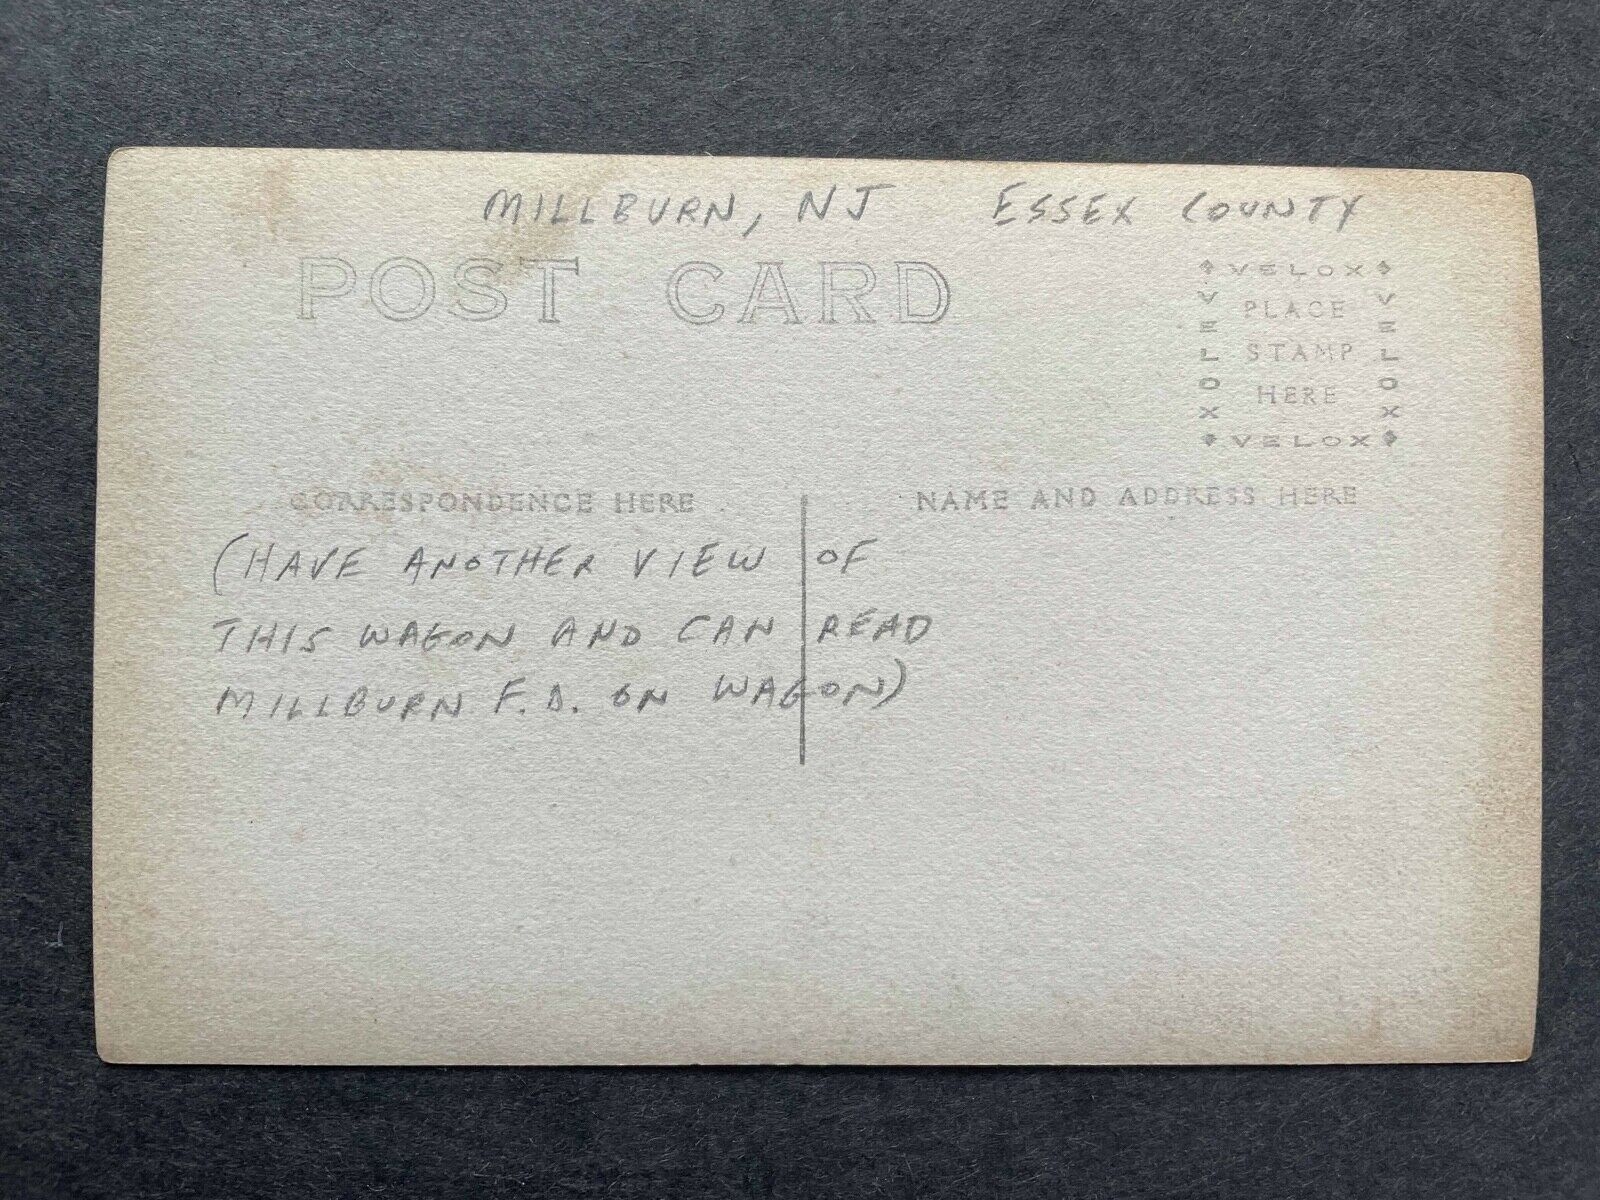 MILLBURN, NJ ESSEX COUNTY
POST CARD
VELOX
VELOX
PLACE
STAMP
HERE
VELOX
VELOX
CORRESPONDENCE HERE
NAME AND ADDRESS HERE
(HAVE ANOTHER VIEW OF
THIS WAGON AND CAN READ
MILLBURN F.D. ON WAGON)